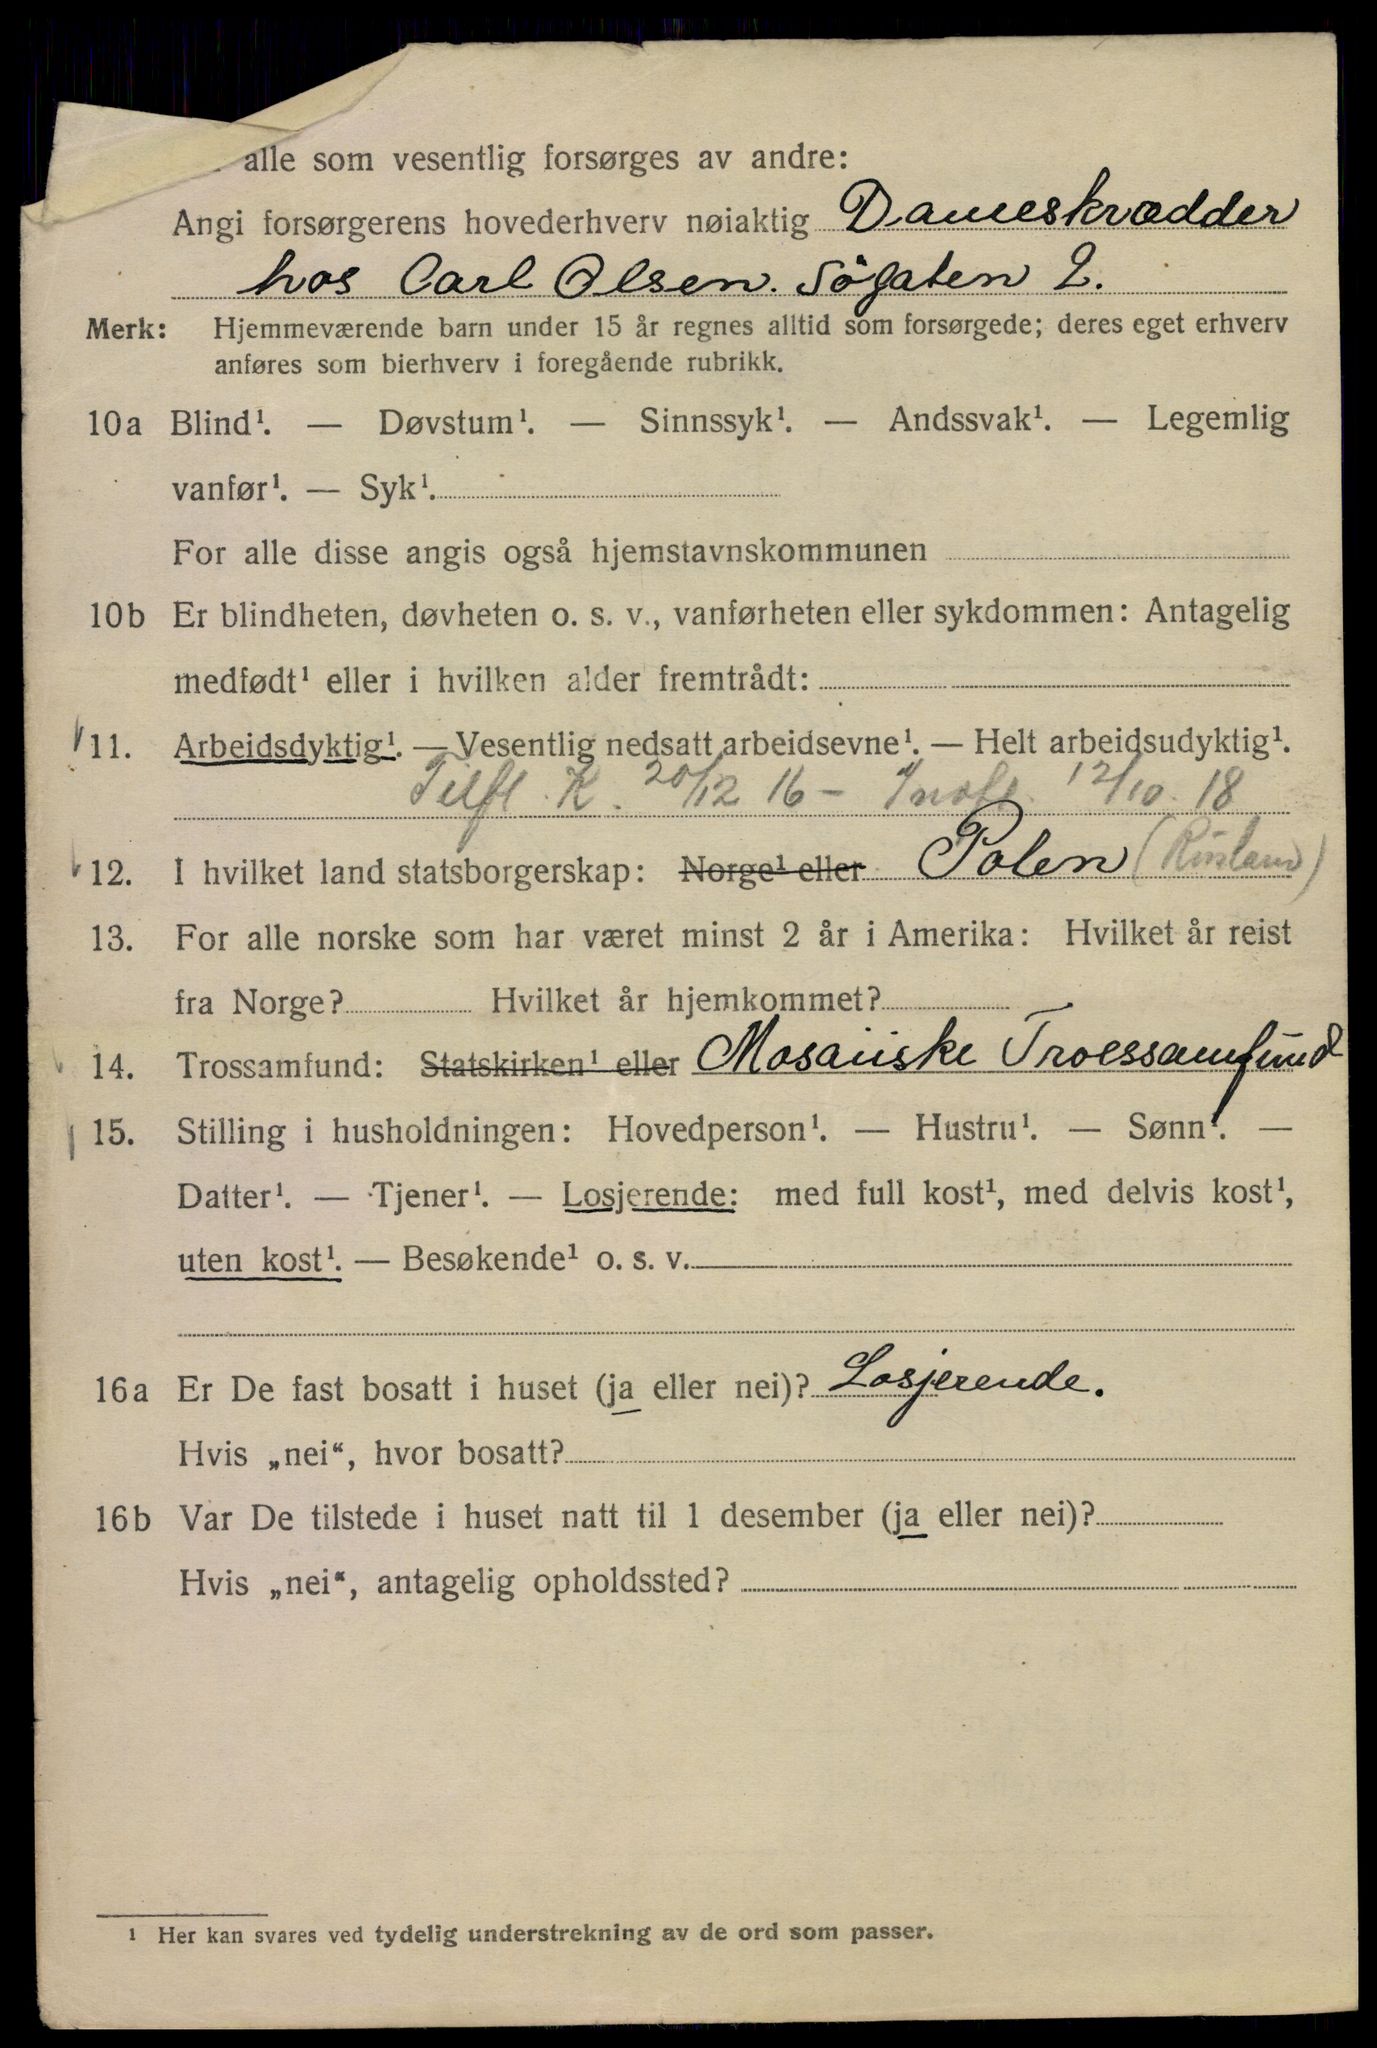 alle som vesentlig forsørges av andre:
Angi forsørgerens hovederhverv nøiaktig Dameskrædder
hos Carl Olsen. Søgaten 2.
Merk: Hjemmeværende barn under 15 år regnes alltid som forsørgede; deres eget erhverv
anføres som bierhverv i foregående rubrikk.
10a Blind¹. — Døvstum¹. — Sinnssyk¹. — Andssvak¹. — Legemlig
vanfør¹. — Syk¹.
For alle disse angis også hjemstavnskommunen
10b Er blindheten, døvheten o. s. v., vanførheten eller sykdommen: Antagelig
medfødt¹ eller i hvilken alder fremtrådt:
11. Arbeidsdyktig¹. — Vesentlig nedsatt arbeidsevne¹. — Helt arbeidsudyktig¹.
Tilfl. K. 20/12 16 - 12/10 18
12. I hvilket land statsborgerskap: Norge¹ eller Polen (Rusland)
13. For alle norske som har været minst 2 år i Amerika: Hvilket år reist
fra Norge? Hvilket år hjemkommet?
14. Trossamfund: Statskirken¹ eller Mosaiiske Troessamfund
15. Stilling i husholdningen: Hovedperson¹. — Hustru¹. — Sønn¹. —
Datter¹. — Tjener¹. — Losjerende: med full kost¹, med delvis kost¹,
uten kost¹. — Besøkende¹ o. s. v.
16a Er De fast bosatt i huset (ja eller nei)? Losjerende.
Hvis „nei“, hvor bosatt?
16b Var De tilstede i huset natt til 1 desember (ja eller nei)?
Hvis „nei“, antagelig opholdssted?
¹ Her kan svares ved tydelig understrekning av de ord som passer.